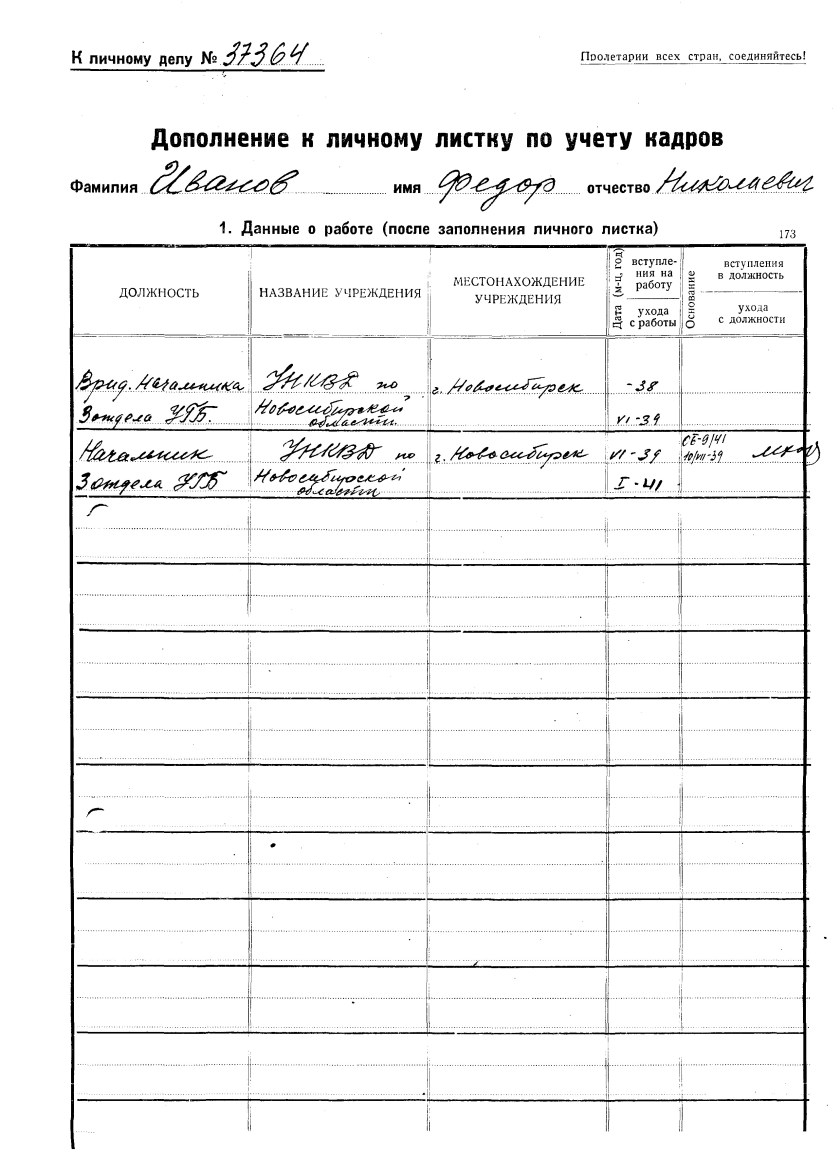 К личному делу № 37364
Пролетарии всех стран, соединяйтесь!
Дополнение к личному листку по учету кадров
Фамилия Иванов имя Федор отчество Николаевич
1. Данные о работе (после заполнения личного листка)
173
ДОЛЖНОСТЬ
НАЗВАНИЕ УЧРЕЖДЕНИЯ
МЕСТОНАХОЖДЕНИЕ
УЧРЕЖДЕНИЯ
Дата (м-ц, год)
вступле-
ния на
работу
ухода
с работы
Основание
вступления
в должность
ухода
с должности
Врид. Начальника
3 отдела УГБ.
УНКВД по
Новосибирской
области.
г. Новосибирск
-38
VI-39
Начальник
3 отдела УГБ
УНКВД по
Новосибирской
области
г. Новосибирск
VI-39
I-41
10/VII-39